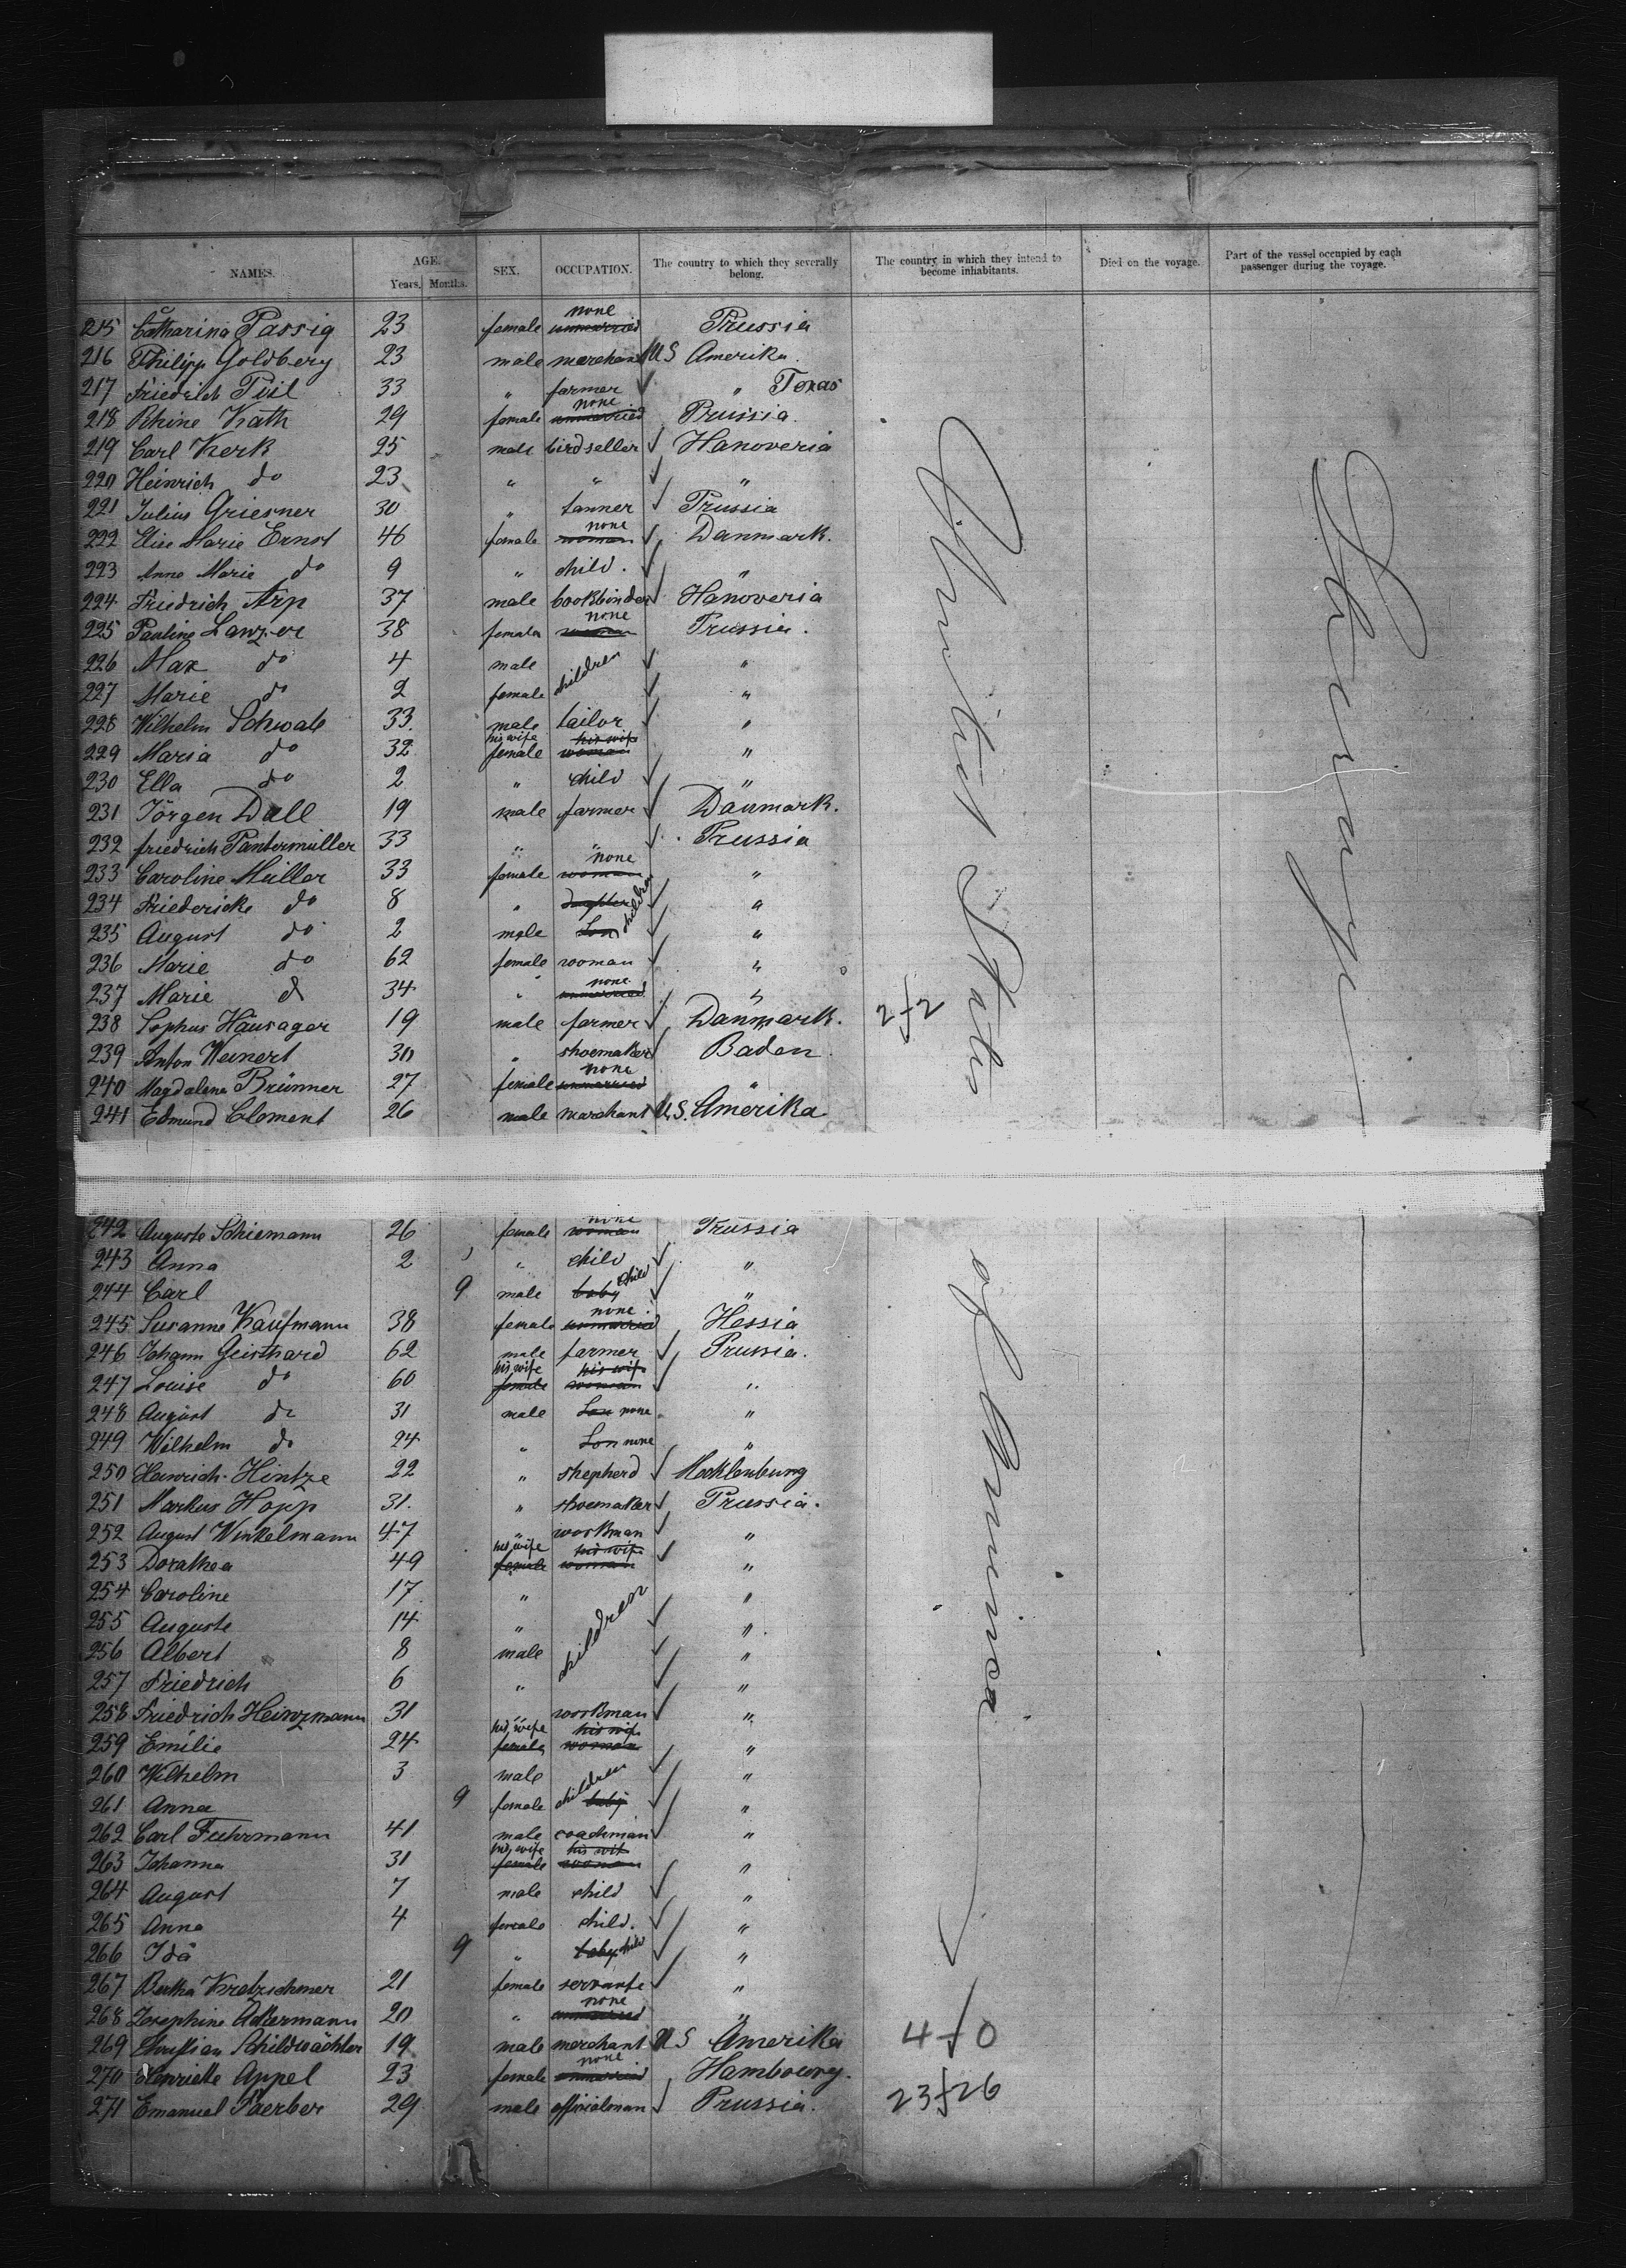 NAMES. AGE. Years. Months. SEX. OCCUPATION. The country to which they severally belong. The country in which they intend to become inhabitants. Died on the voyage. Part of the vessel occupied by each passenger during the voyage.
215 Catharina Passig 23 female unmarried none Prussia
216 Philipp Goldberg 23 male merchant U S Amerika.
217 Friedrich 33 " farmer " Texas
218 Rhine Kath 29 female unmarried none Prussia.
219 Carl Kerk 25 male birdseller Hanoveria
220 Heinrich do 23 " " "
221 Julius Griesner 30 " tanner Prussia
222 Elise Marie Ernst 46 female woman none Danmark.
223 Anna Marie do 9 " child. "
224 Friedrich Arp 37 male bookbinder Hanoveria
225 Pauline Lanzer 38 female woman none Prussia.
226 Max do 4 male children "
227 Marie do 2 female "
228 Wilhelm Schwab 33. male tailor "
229 Maria do 32 his wife female his wife woman "
230 Ella do 2 " child "
231 Jörgen Dall 19 male farmer Danmark.
232 friedrich Pantermüller 33 " " Prussia
233 Caroline Müller 33 female woman none "
234 Friedericke do 8 " daughter children "
235 August do 2 male Son "
236 Marie do 62 female woman "
237 Marie do 34 " unmarried none "
238 Sophus Häusager 19 male farmer Danmark. 2+2
239 Anton Weinert 30 " shoemaker Baden
240 Magdalena Brünner 27 female unmarried none "
241 Edmund Clement 26 male marchant U.S. Amerika
242 Auguste Schiemann 26 female woman none Prussia
243 Anna 2 " child "
244 Carl 9 male baby child "
245 Susanne Kaufmann 38 female unmarried none Hessia
246 Johann Geisthard 62 male farmer Prussia.
247 Louise do 60 his wife female his wife woman "
248 August do 31 male Son none "
249 Wilhelm do 24 " Son none "
250 Heinrich Hintze 22 " shepherd Mecklenburg
251 Markus Hopp 31. " shoemaker Prussia.
252 August Winkelmann 47 " workman "
253 Dorathea 49 his wife female his wife woman "
254 Caroline 17 " children "
255 Auguste 14 " "
256 Albert 8 male "
257 Friedrich 6 " "
258 Friedrich Heinzmann 31 " workman "
259 Emilie 24 his wife female his wife woman "
260 Wilhelm 3 male children "
261 Anna 9 female baby "
262 Carl Fuhrmann 41 male coachman "
263 Johanna 31 his wife female his wife woman "
264 August 7 male child "
265 Anna 4 female child. "
266 Ida 9 " baby child "
267 Bertha Kretzschmer 21 female servante "
268 Josephine Ackermann 20 " unmarried none "
269 Christian Schildwächter 19 male merchant U S Amerika 4+0
270 Henriette Appel 23 female unmarried none Hambourg.
271 Emanuel Faerber 29 male officialman Prussia. 23+26
United States of America
Steerage